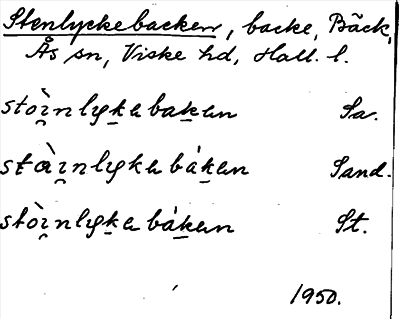 Stenlyckebacken, backe, Bäck,
Ås sn, Viske hd, Hall. l.
stòi̯nlyk̠ebak̠en Sa.
stài̯nlyk̠ebák̠en Sand.
stòi̯nlyk̠ebák̠en St.
1950.